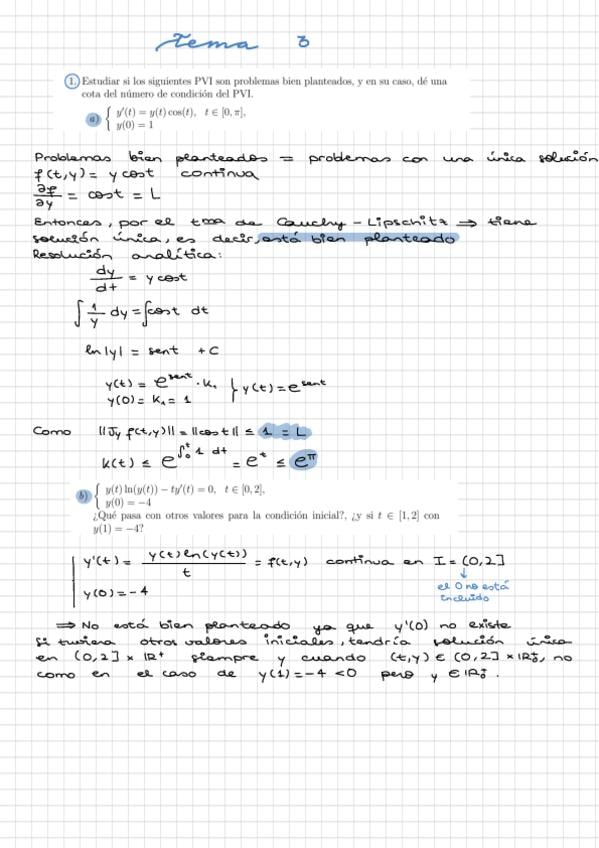 Tema 3
1. Estudiar si los siguientes PVI son problemas bien planteados, y en su caso, dé una
cota del número de condición del PVI.
a) { y′(t) = y(t) cos(t), t ∈ [0, π],
y(0) = 1
Problemas bien planteados = problemas con una única solución
f(t,y) = y cost continua
∂f/∂y = cost = L
Entonces, por el tma de Cauchy - Lipschitz ⇒ tiene
solución única, es decir, está bien planteado
Resolución analítica:
dy/dt = y cost
∫ 1/y dy = ∫cost dt
ln|y| = sent + C
y(t) = e^sent · K₁ } y(t) = e^sent
y(0) = K₁ = 1
Como ||Jy f(t,y)|| = ||cost|| ≤ 1 = L
K(t) ≤ e^∫₀ᵗ 1 dt = e^t ≤ e^π
b) { y(t) ln(y(t)) − ty′(t) = 0, t ∈ [0, 2],
y(0) = −4
¿Qué pasa con otros valores para la condición inicial?, ¿y si t ∈ [1, 2] con
y(1) = −4?
y'(t) = y(t) ln(y(t))/t = f(t,y) continua en I = (0,2]
el 0 no está
incluido
y(0) = -4
⇒ No está bien planteado ya que y'(0) no existe
Si tuviera otros valores iniciales, tendría solución única
en (0,2] × IR⁺ siempre y cuando (t,y) ∈ (0,2] × IR₀⁺, no
como en el caso de y(1) = -4 < 0 pero y ∈ IR₀⁺.